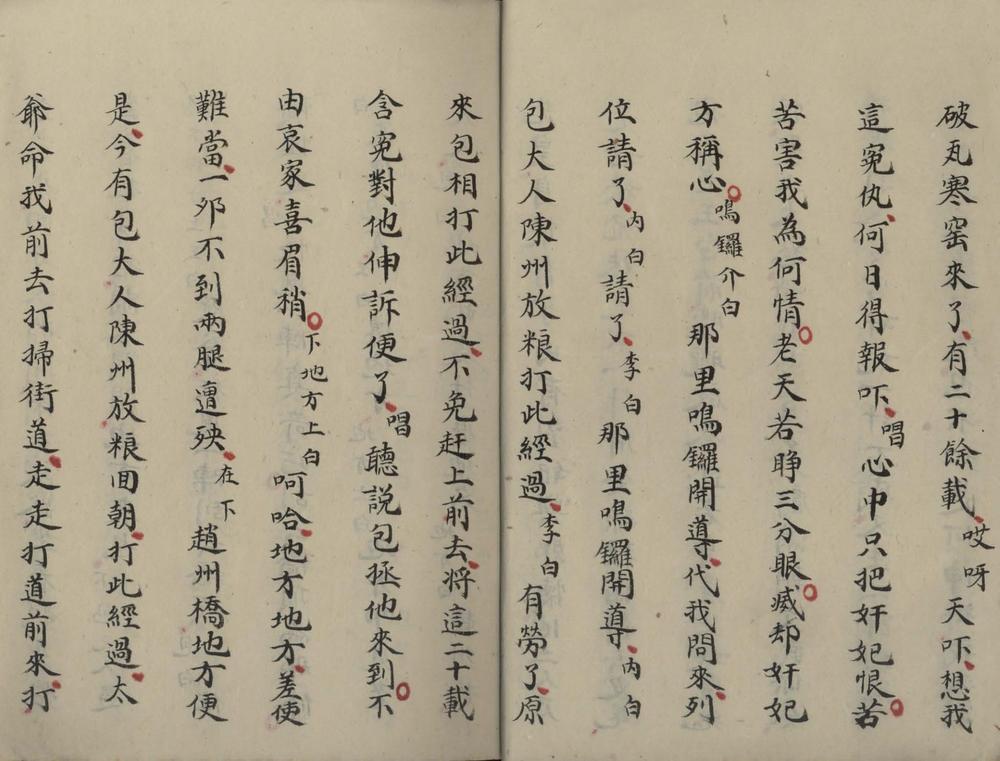 破瓦寒窑來了、有二十餘載、哎呀天吓、想我
這冤仇、何日得報吓、唱心中只把奸妃恨苦○
苦害我為何情○老天若睁三分眼○威却奸妃
方稱心○鳴鑼介白那里鳴鑼開導、代我問來、列
位請了、內白請了、李白那里鳴鑼開導、內白
包大人陳州放粮打此經過、李白有勞了、原
來包相打此經過、不免赶上前去、將這二十載
含冤對他伸訴便了、唱聽說包拯他來到○不
由哀家喜眉稍○下地方上白呵哈、地方地方、差使
難當、一夘不到兩腿遭殃、在下趙州橋地方便
是、今有包大人陳州放粮回朝、打此經過、太
爺命我前去打掃街道、走走打道前來、打